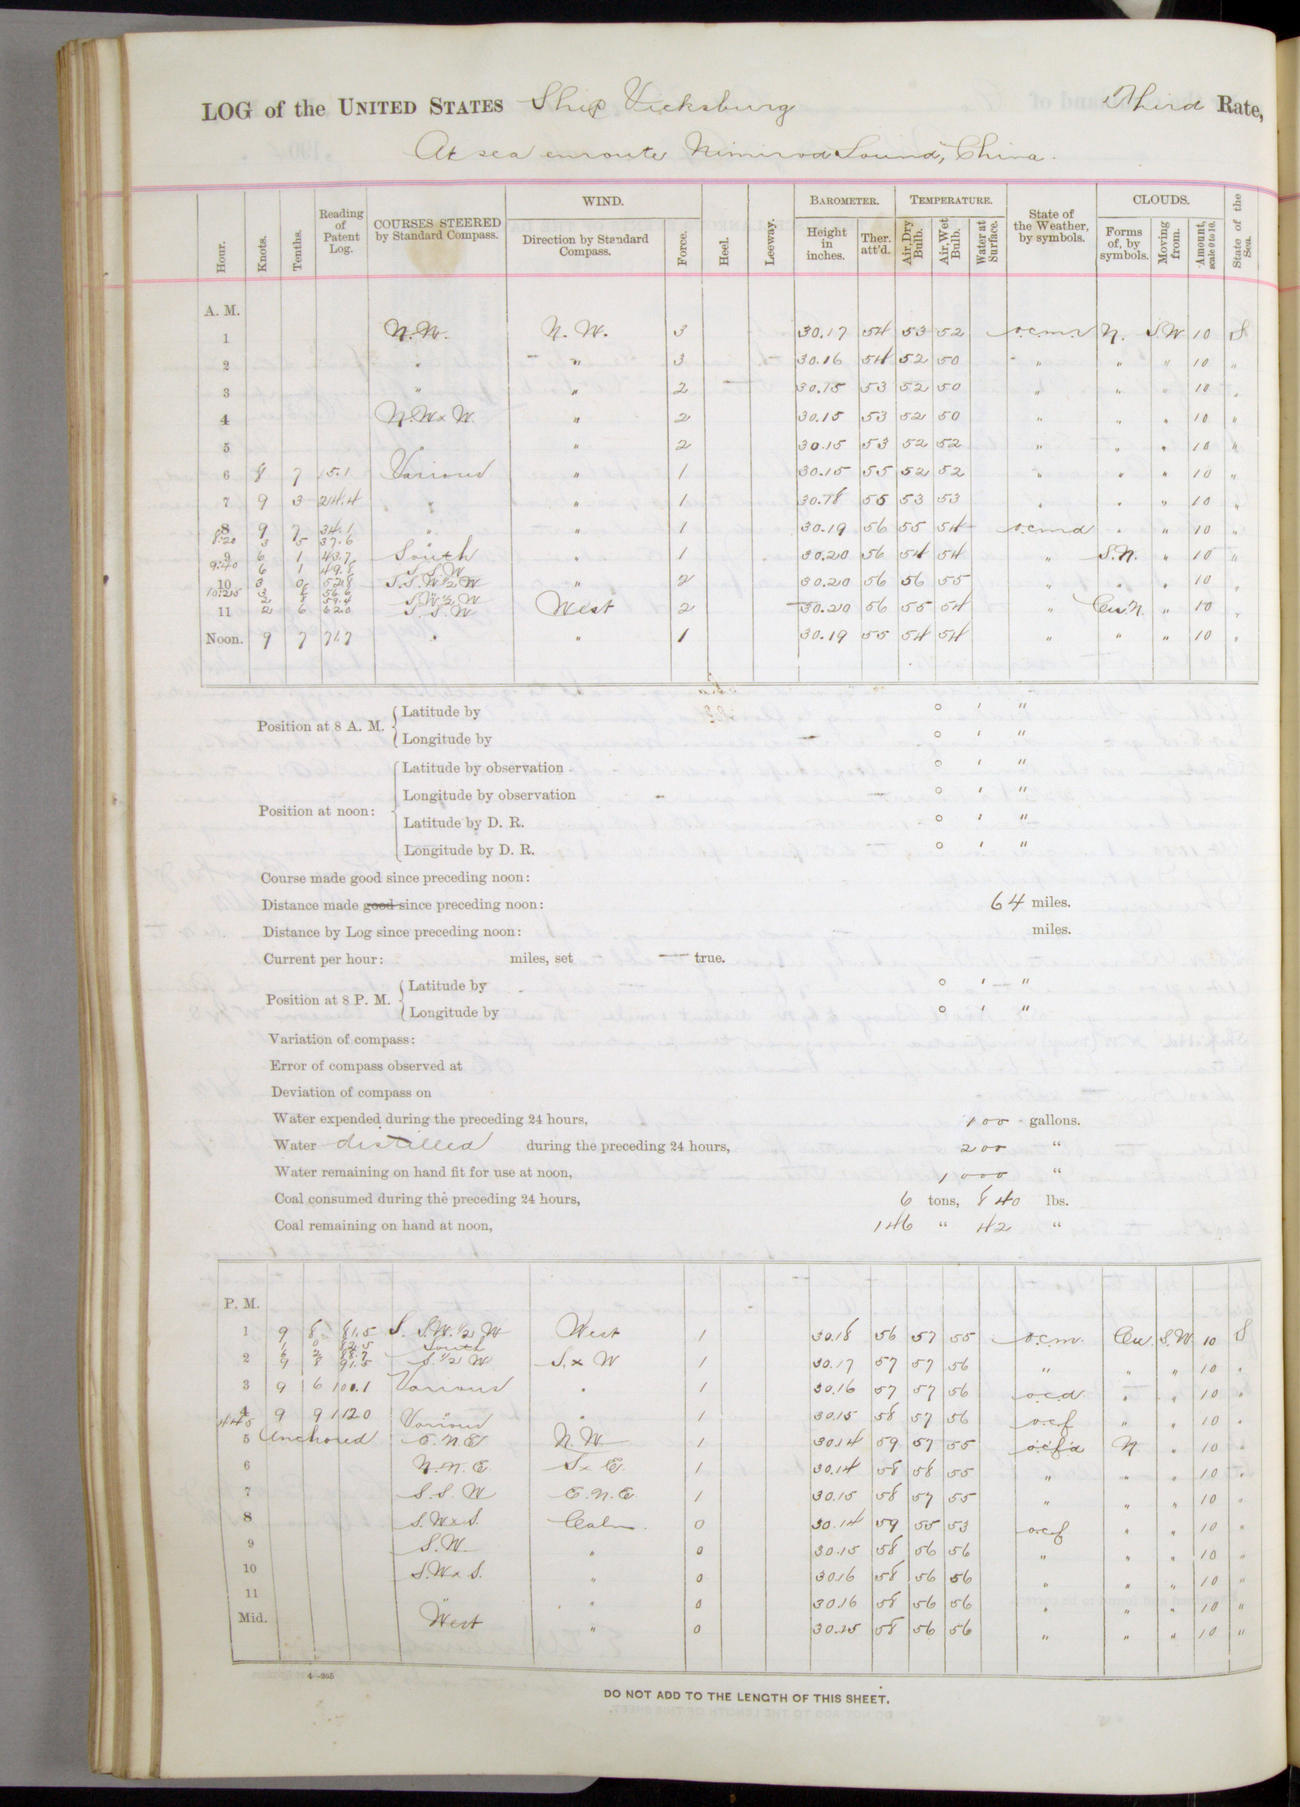 LOG of the UNITED STATES Ship Vicksburg Third Rate,
At sea enroute Nimrod Sound, China.
Hour. Knots. Tenths. Reading of Patent Log. COURSES STEERED by Standard Compass. WIND. Direction by Standard Compass. Force. Heel. Leeway. BAROMETER. Height in inches. Ther. att'd. TEMPERATURE. Air, Dry Bulb. Air, Wet Bulb. Water at Surface. State of the Weather, by symbols. CLOUDS. Forms of, by symbols. Moving from. Amount, scale 0 to 10. State of the Sea.
A. M.
1 N.W. N.W. 3 30.17 54 53 52 N. S.W. 10 S
2 " " 3 30.16 54 52 50 " " " 10 "
3 " " 2 30.15 53 52 50 " " " 10 "
4 N.W x W. " 2 30.15 53 52 50 " " " 10 "
5 " " 2 30.15 53 52 52 " " " 10 "
6 8 7 15.1 Various " 1 30.15 55 52 52 " " " 10 "
7 9 3 24.4 " " 1 30.18 55 53 53 " " " 10 "
8 9 7 34.1 " " 1 30.19 56 55 54 o.c.m.d " " 10 "
8:20 3 5 37.6
9 6 1 43.7 South " 1 30.20 56 54 54 " S.N. " 10 "
9:40 6 1 49.8 S.S.W
10 3 0 52.8 S.S.W ½ W " 2 30.20 56 56 55 " " " 10 "
10:25 3 8 56.6
2 8 59.4 S.W ½ W
11 2 6 62.0 S.S.W West 2 30.20 56 55 54 " Cu N. " 10 "
Noon. 9 7 71.7 " " 1 30.19 55 54 54 " " " 10 "
Position at 8 A. M. Latitude by ° ' "
Longitude by ° ' "
Position at noon: Latitude by observation ° ' "
Longitude by observation ° ' "
Latitude by D. R. ° ' "
Longitude by D. R. ° ' "
Course made good since preceding noon:
Distance made good since preceding noon: 64 miles.
Distance by Log since preceding noon: miles.
Current per hour: miles, set true.
Position at 8 P. M. Latitude by ° ' "
Longitude by ° ' "
Variation of compass:
Error of compass observed at
Deviation of compass on
Water expended during the preceding 24 hours, 100 gallons.
Water distilled during the preceding 24 hours, 200 "
Water remaining on hand fit for use at noon, 1000 "
Coal consumed during the preceding 24 hours, 6 tons, 840 lbs.
Coal remaining on hand at noon, 146 " 42 "
P. M.
1 9 8 81.5 S. S.W. ½ W West 1 30.18 56 57 55 o.c.m. Cu. S.W. 10 S
1 0 82.5 South
2 9 8 91.5 S. ½ W S. x W 1 30.17 57 57 56 " " " 10 "
3 9 6 100.1 Various " 1 30.16 57 57 56 o.c.d. " " 10 "
4 9 9 112.0 Various " 1 30.15 58 57 56 o.c.f " " 10 "
4 45
5 Anchored E.N.E N.W. 1 30.14 59 57 55 o.c.f.d N. " 10 "
6 N.N.E. S x E. 1 30.14 58 58 55 " " " 10 "
7 S.S.W E.N.E. 1 30.15 58 57 55 " " " 10 "
8 S.W x S. Calm. 0 30.14 59 55 53 o.c.f " " 10 "
9 S.W. " 0 30.15 58 56 56 " " " 10 "
10 S.W x S. " 0 30.16 58 56 56 " " " 10 "
11 " " 0 30.16 58 56 56 " " " 10 "
Mid. West " 0 30.15 58 56 56 " " " 10 "
4—205
DO NOT ADD TO THE LENGTH OF THIS SHEET.